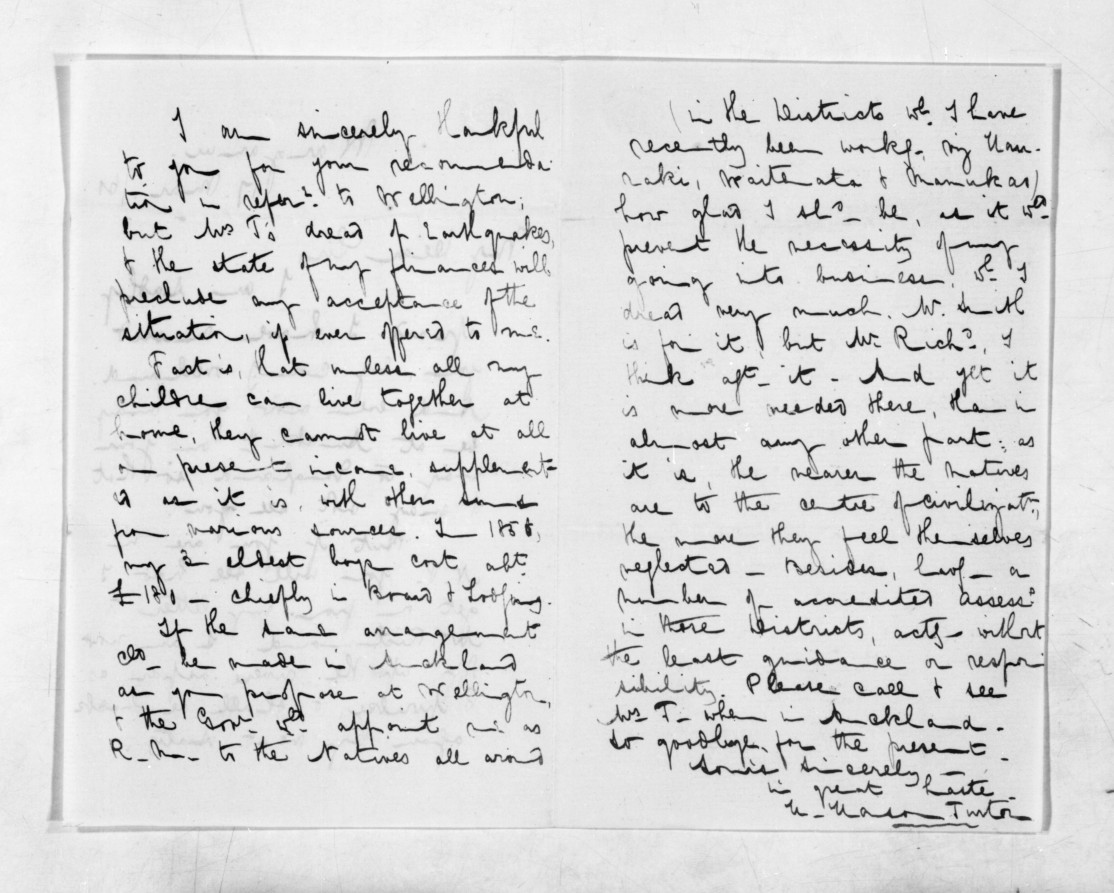 I am sincerely thankful
to you for your recommenda-
tion in refer.ce to Wellington;
but Mrs T's dread of Earthquakes,
& the state of my finances will
preclude any acceptance of the
situation, if ever offered to me.
Fact is, that unless all my
children can live together at
home, they cannot live at all
on present income, supplement-
ed as it is, with other sums
from various sources. In 1858,
my 3 eldest boys cost abt.
£180 - chiefly in Board & Lodging.
If the same arrangement
cld. be made in Auckland
as you propose at Wellington,
& the Govr. wd. appoint me as
R. M. to the Natives all around
(in the Districts wh. I have
recently been workg., viz Hau-
raki, Waitemata & Manukau)
how glad I shd. be, as it wd.
prevent the necessity of my
going into business, wh. I
dread very much. Mr. Smith
is for it, but Mr. Richd., I
think agst. it - And yet it
is more needed there, than in
almost any other part; as
it is, the nearer the Natives
are to the centre of civilizatn.,
the more they feel themselves
neglected - Besides, havg. a
number of accredited Assessrs.
in those Districts, actg. without
the least guidance or respon-
sibility. Please call & see
Mrs T. when in Auckland.
So goodbye, for the present -
Yours sincerely -
in great haste -
H. Hanson Turton